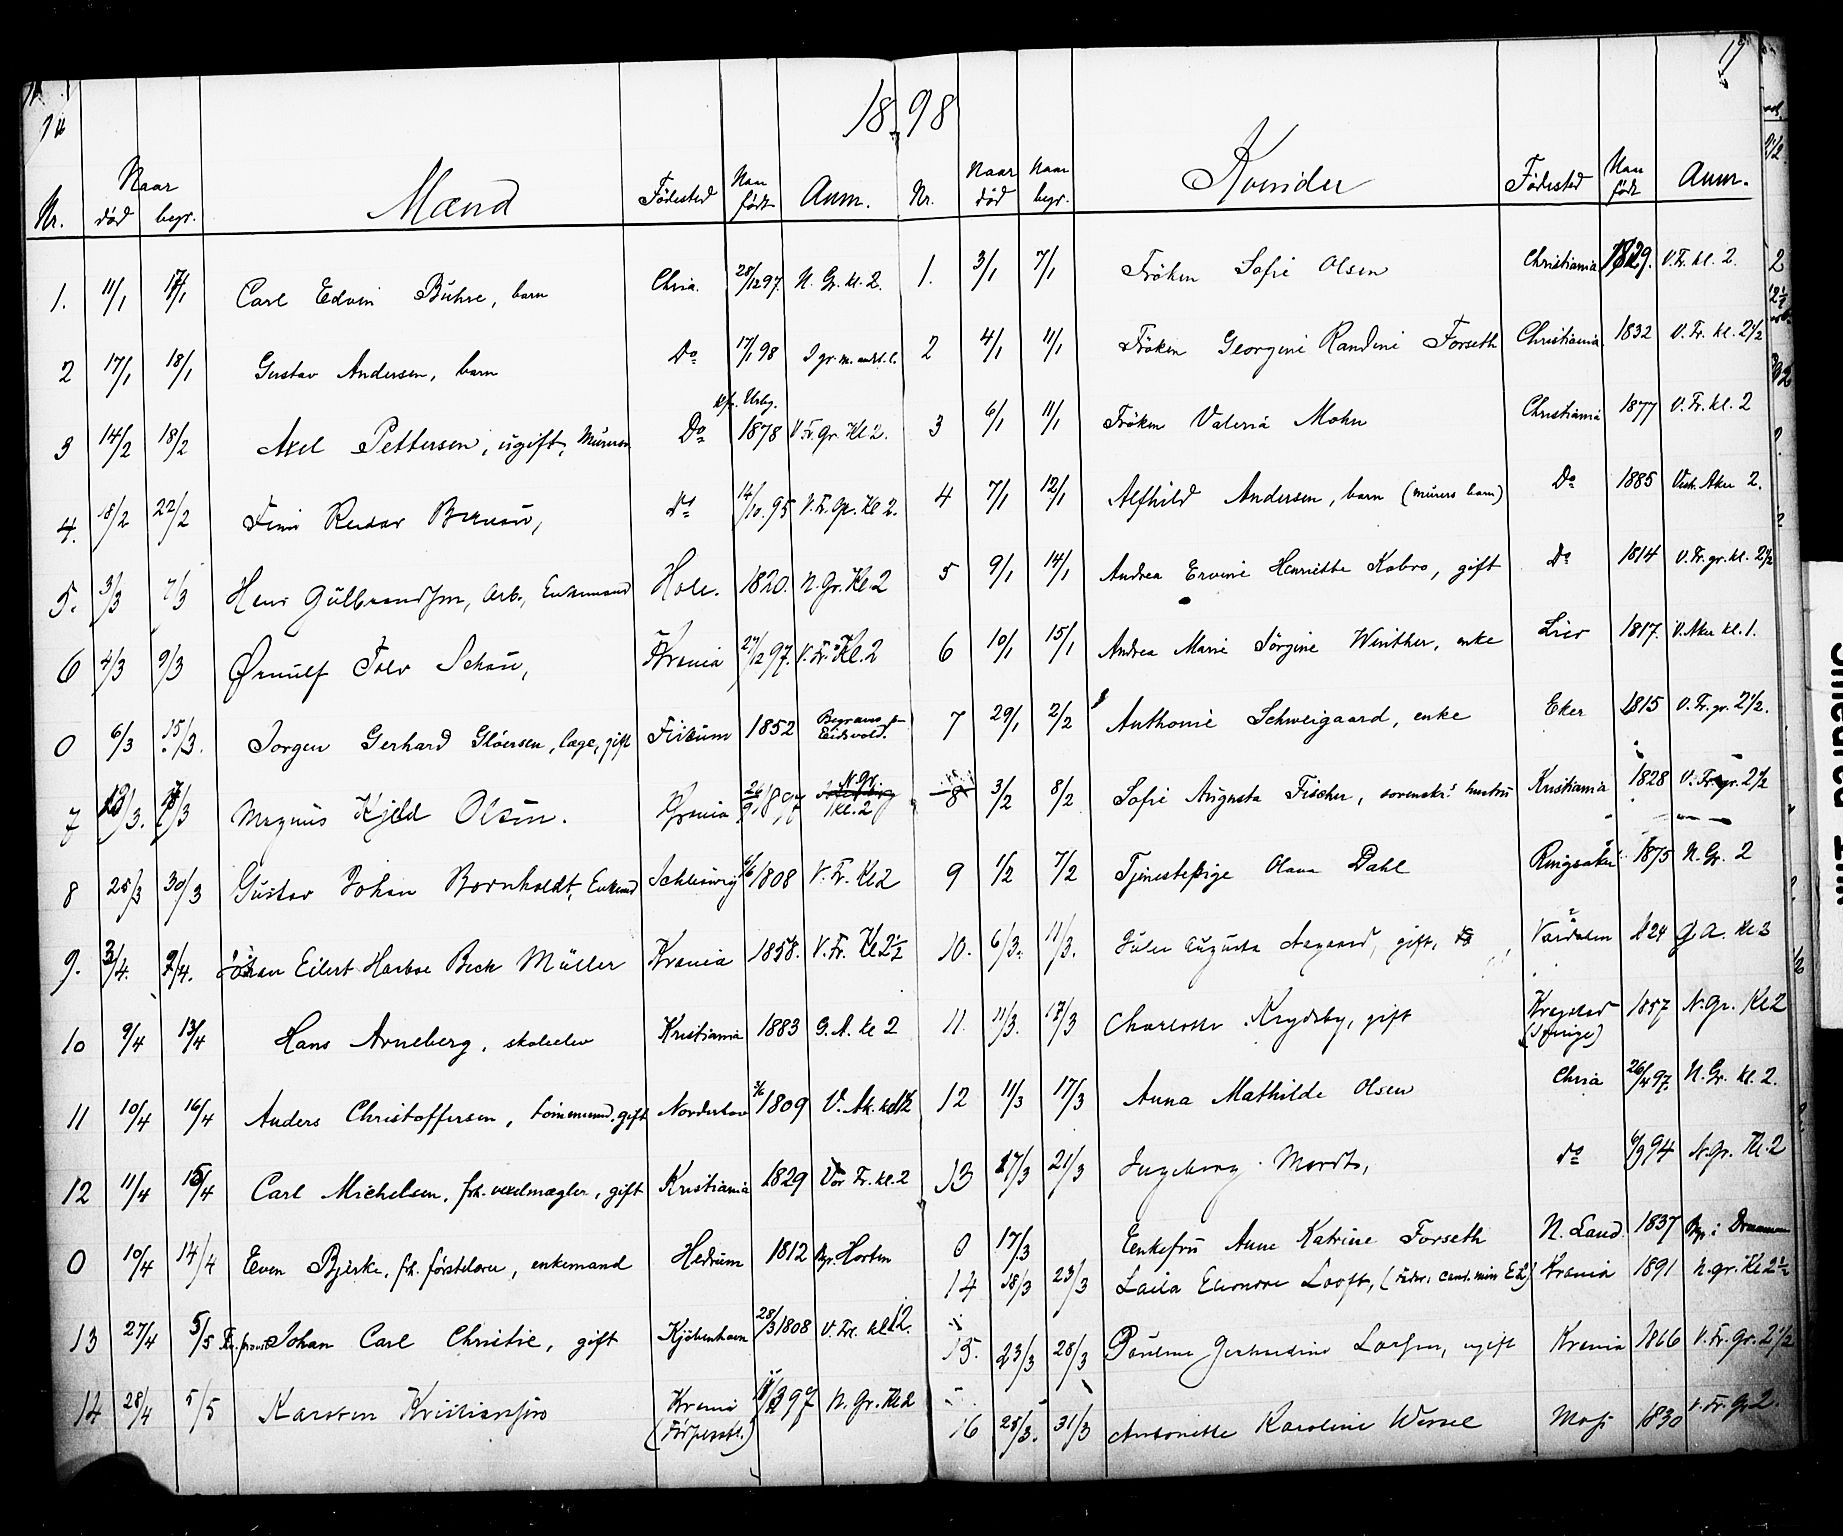 1898
Nr. Naar død begr. Mænd Fødested Naar født Anm.
1. 11/1 17/1 Carl Edvin Buhre, barn Chria. 28/12 97. N. Gr. kl. 2.
2 17/1 18/1 Gustav Andersen, barn Do 17/1 98
3 14/2 18/2 Axel Pettersen, ugift, Murersv Do 1878 V. Fr. Gr. Kl 2.
4. 18/2 22/2 Finn Reidar do 14/10. 95 V. Fr. Gr. Kl 2.
5. 3/3 7/3 Hans Gulbrandsen, Arb., Enkemand Hole. 1820. N. Gr. Kl. 2
6 4/3 9/3 Ørnulf Tolv Schau, Krania 27/12 97. V. Fr. Kl. 2
0 6/3 15/3. Jørgen Gerhard Gløersen, læge, gift 1852 Eidsvold.
7 /3. /3 Magnus Kjeld Olsen. Krania N. Gr. kl. 2
8 25/3 30/3 Gustav Johan Bornholdt, Enkemd Schleswig 6/6 1808 V. Fr. Kl 2
9. 3/4. 9/4. Johan Eilert Harboe Beck Müller Krania 1858. V. Fr. Kl 2 1/2
10 9/4 13/4 Hans Arneberg, skoleelev Kristiania 1883 G. A. kl 2
11 10/4 16/4 Anders Christoffersen, gift Norderhov 3/6 1809 V. Ak. kl 12
12 11/4 15/4 Carl Michelsen, frh. vexelmægler, gift Kristiania 1829 Vor Fr. kl. 2
0 10/4 14/4 Even Bjerke, frh. førstelærer, enkemand Hedrum 1812 Bgr. Horten
13 27/4 5/5 Johan Carl Christie, gift Kjøbenhavn 28/3 1808 V. Fr. kl 12.
14 28/4 5/5 Karsten Krania 97 N. Gr. Kl 2
17
Nr. Naar død Naar begr. Kvinder Fødested Naar født Anm.
1. 3/1 7/1 Frøken Sofie Olsen Christiania 1829. V. Fr. kl. 2.
2 4/1 11/1 Frøken Georgine Randine Forseth Christiania 1832 V. Fr. kl. 2 1/2
3 6/1 11/1 Frøken Valeria Mohn Christiania 1877 V. Fr. kl. 2
4 7/1 12/1 Alfhild Andersen, barn (murers barn) Do 1885 Vestr. Aker 2.
5 9/1 14/1 Andrea Ervine Henriette Kobro, gift Do 1814 V. Fr. gr. kl. 2 1/2
6 10/1 15/1 Andrea Marie Jørgine Winther, enke Lier 1817 V. Aker kl. 1.
7 29/1 2/2 Anthonie Schweigaard, enke Eker 1815 V. Fr. gr. 2 1/2.
8 3/2 8/2 Sofie Augusta Fischer, sorenskr.s hustru Kristiania 1828 V. Fr. gr. 2 1/2
9 1/2 7/2 Tjenestepige Olava Dahl Ringsaker 1875 N. Gr. 2
10. 6/3. 11/3. Julie Augusta Aagaard, gift, Værdalen 1824 G A. Kl 3
11. 11/3. 17/3 Charlotte Krydsby, gift (Sverige) 1857 N. Gr. Kl 2
12 11/3 17/3 Anna Mathilde Olsen Chria 26/4 97. N. Gr. kl. 2.
13 17/3 21/3 Ingeborg Mordt, do 6/9 94 N. Gr. Kl. 2
0 17/3 Enkefru Anne Katrine Forseth N. Land 1837 Bgr. i Drammen
14 18/3 23/3 Laila Eleonore Looft, (Fader: cand. min E.L) Krania 1891 N. gr. Kl 2 1/2
15. 23/3 28/3 Pauline Gerhardine Larsen, ugift Krania 1866 V. Fr. Gr. 2 1/2
16 25/3. 31/3 Antonette Karoline Wessel Moss 1830 V. Fr. Gr 2.